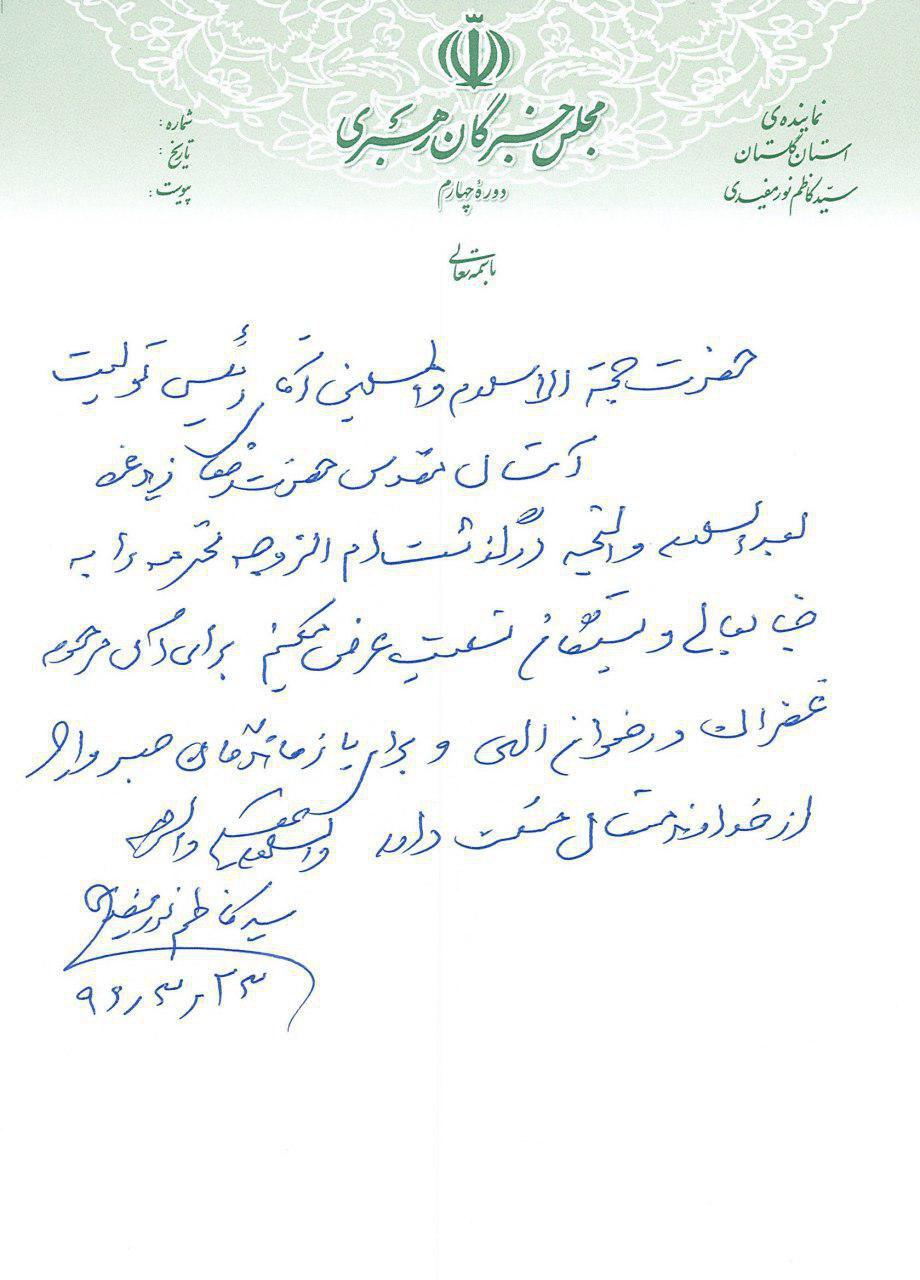 مجلس خبرگان رهبری
دورهٔ چهارم
نماینده‌ی
استان گلستان
سیّد کاظم نورمفیدی
شماره :
تاریخ :
پیوست :
باسمه تعالی
حضرت حجة الاسلام والمسلمین آقای رئیسی تولیت
آستان مقدس حضرت رضا زید عزه
بعد السلام والتحیه درگذشت ام الزوجه محترمه را به
جنابعالی و بستگان تسلیت عرض میکنم برای آن مرحومه
غفران و رضوان الهی و برای بازماندگان صبر و اجر
از خداوند متعال مسئلت دارم والسلام علیکم و
سید کاظم نورمفیدی
۹۶٫۳٫۲۳